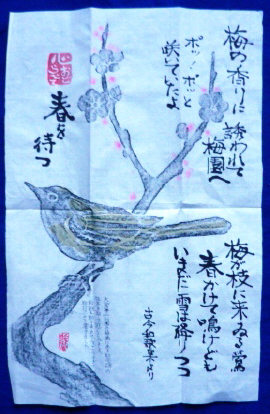 梅の香りに
誘われて
梅園へ
ポッ!ポッと
咲いていたよ
春を
待つ
梅が枝に来ゐる鶯
春かけて鳴けども
いまだに雪は降りつつ
古今和歌集より